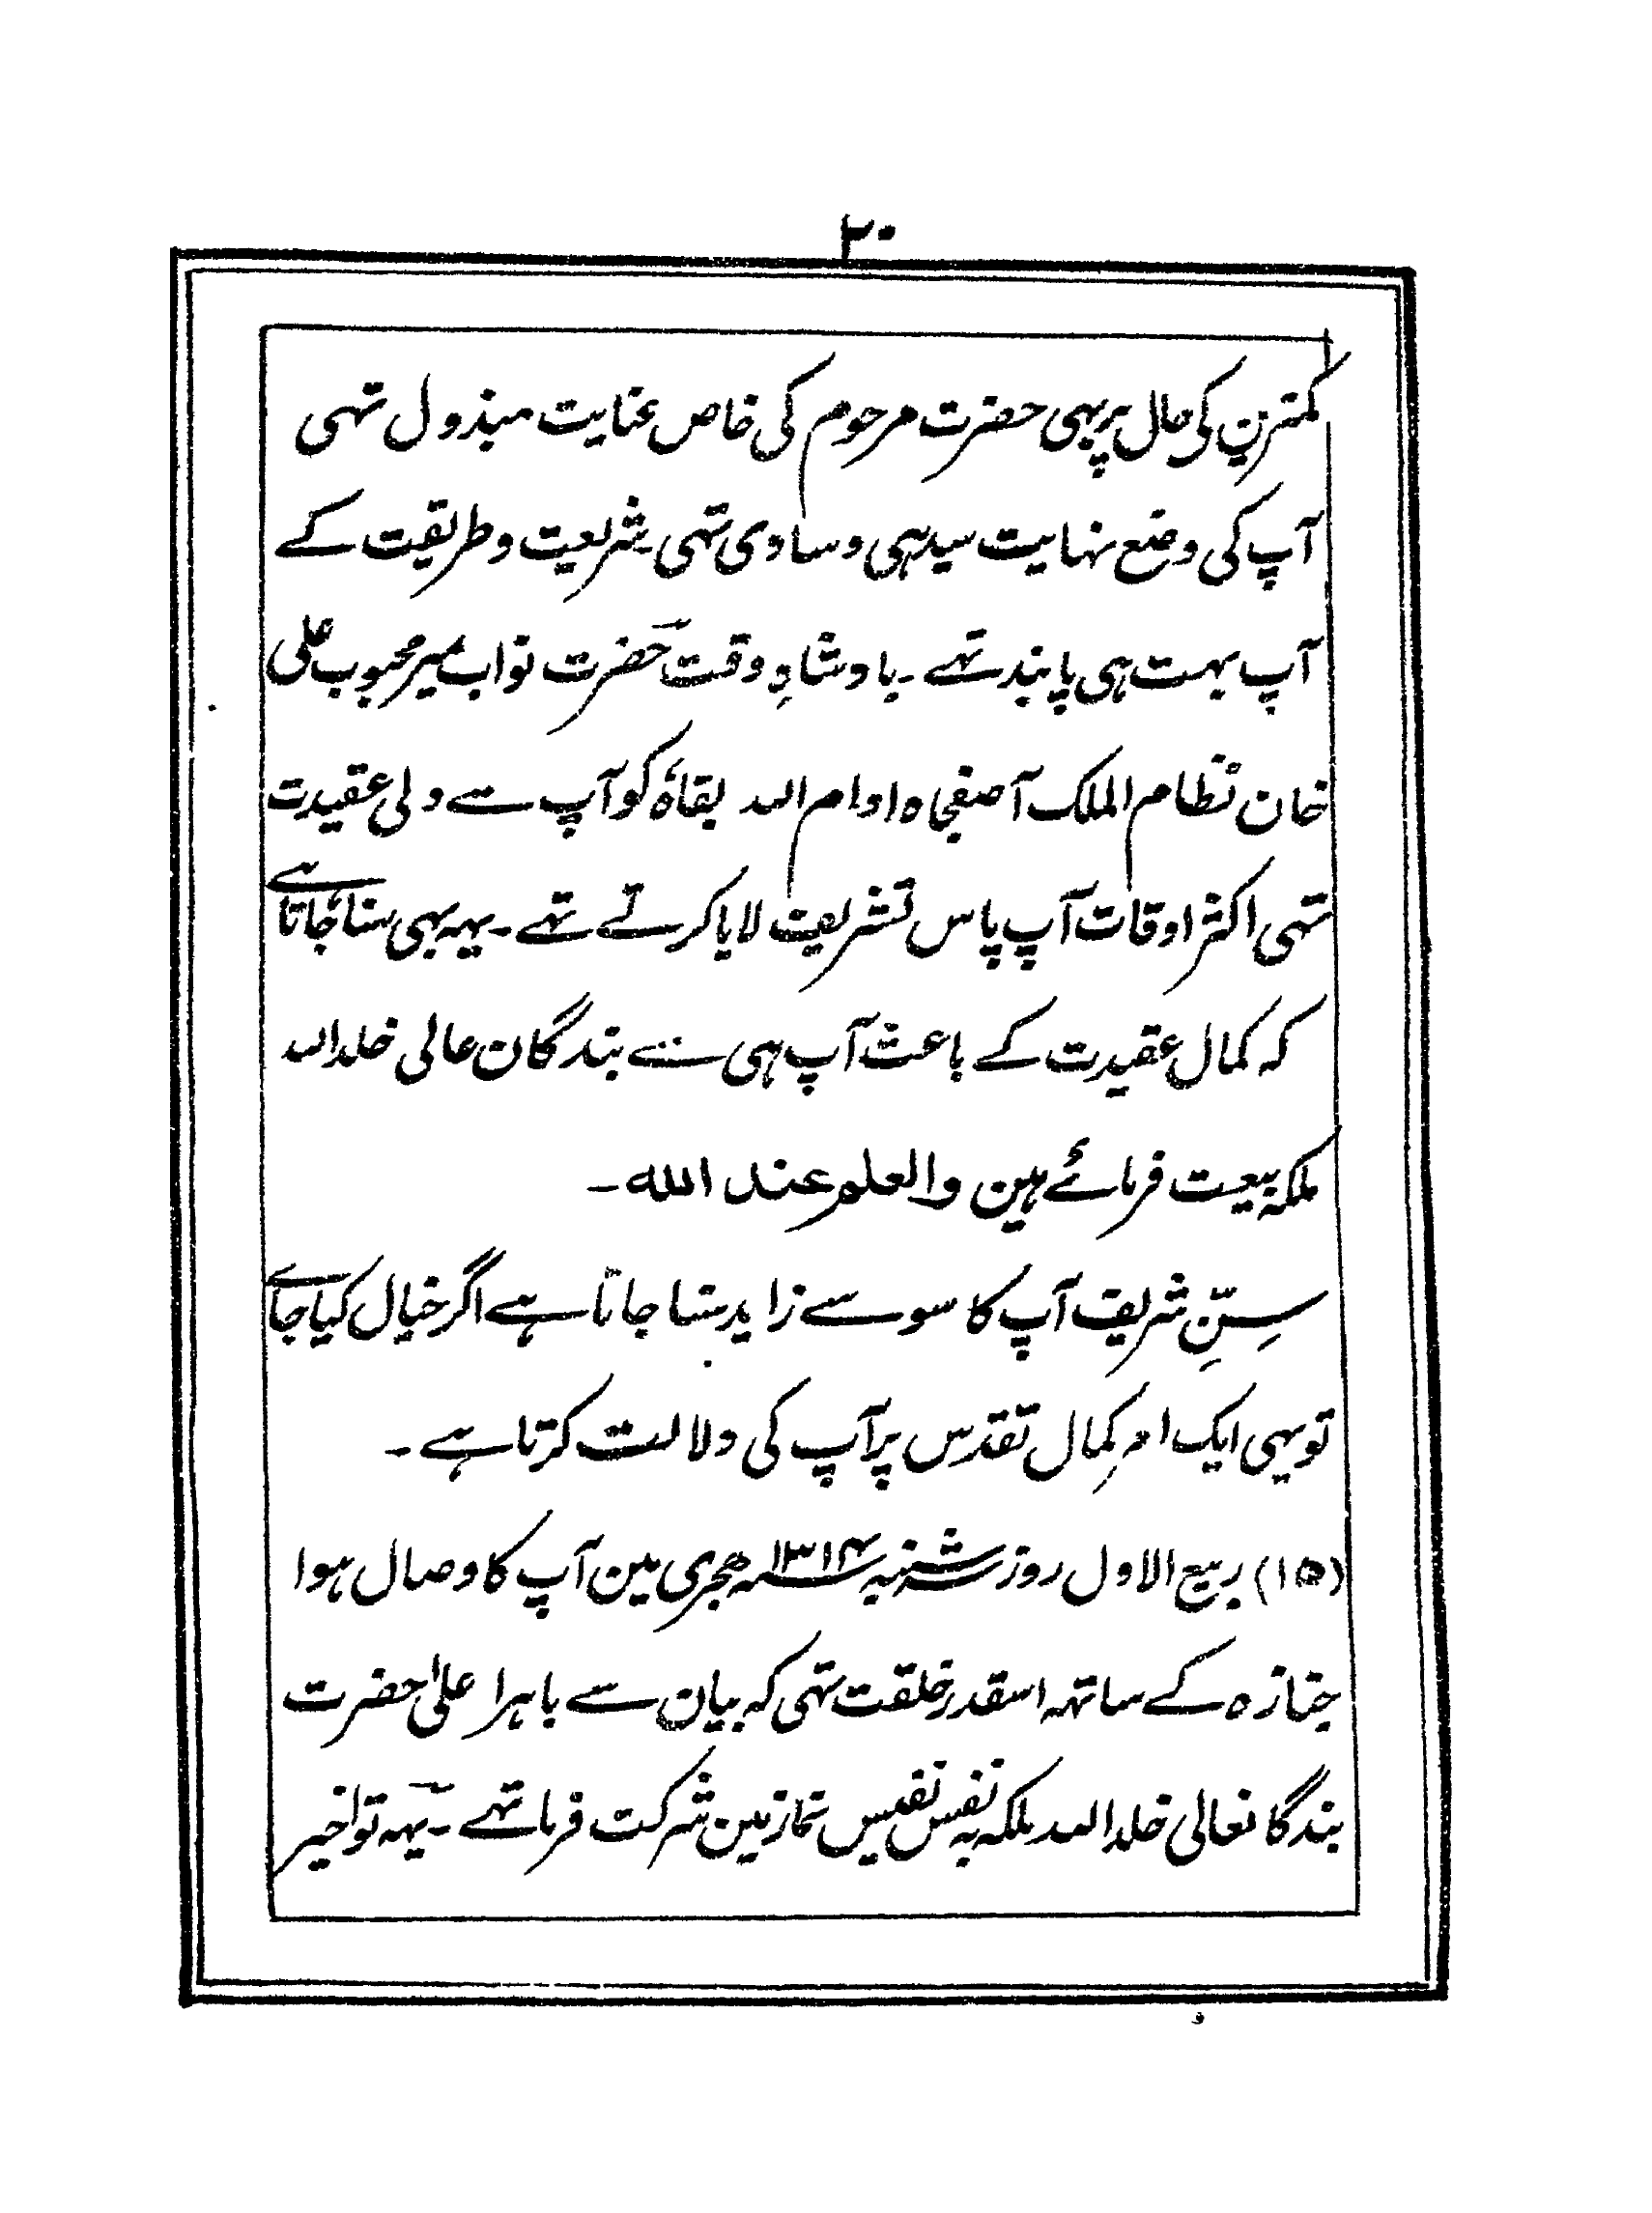 ۲۰
کمترین کی حال پر بہی حضرت مرحوم کی خاص عنایت مبذول تہی
آپ کی وضع نہایت سیدہی و سادی تہی ۔ شریعت و طریقت کے
آپ بہت ہی پابند تہے ۔ بادشاہِ وقت حضرت نواب میر محبوب علی
خان نظام الملک آصفجاہ ادام اللہ بقاہٗ کو آپ سے دلی عقیدت
تہی اکثر اوقات آپ پاس تشریف لایا کرتے تہے ۔ یہہ بہی سنا جاتا ہے
کہ کمال عقیدت کے باعث آپ ہی سے بندگان عالی خلد اللہ
ملکہ بیعت فرمائے ہین والعلم عند اللہ ۔
سِنِّ شریف آپ کا سو سے زاید سنا جاتا ہے اگر خیال کیا جائے
تو یہی ایک امر کمال تقدس پر آپ کی دلالت کرتا ہے ۔
(۱۵) ربیع الاول روز سہ شنبہ سنہ ۱۳۱۴ ہجری مین آپ کا وصال ہوا
جنازہ کے ساتہہ اسقدر خلقت تہی کہ بیان سے باہر اعلیٰ حضرت
بندگانعالی خلد اللہ ملکہ بہ نفس نفیس نماز مین شرکت فرما تہے ۔ یہہ تو اخیر